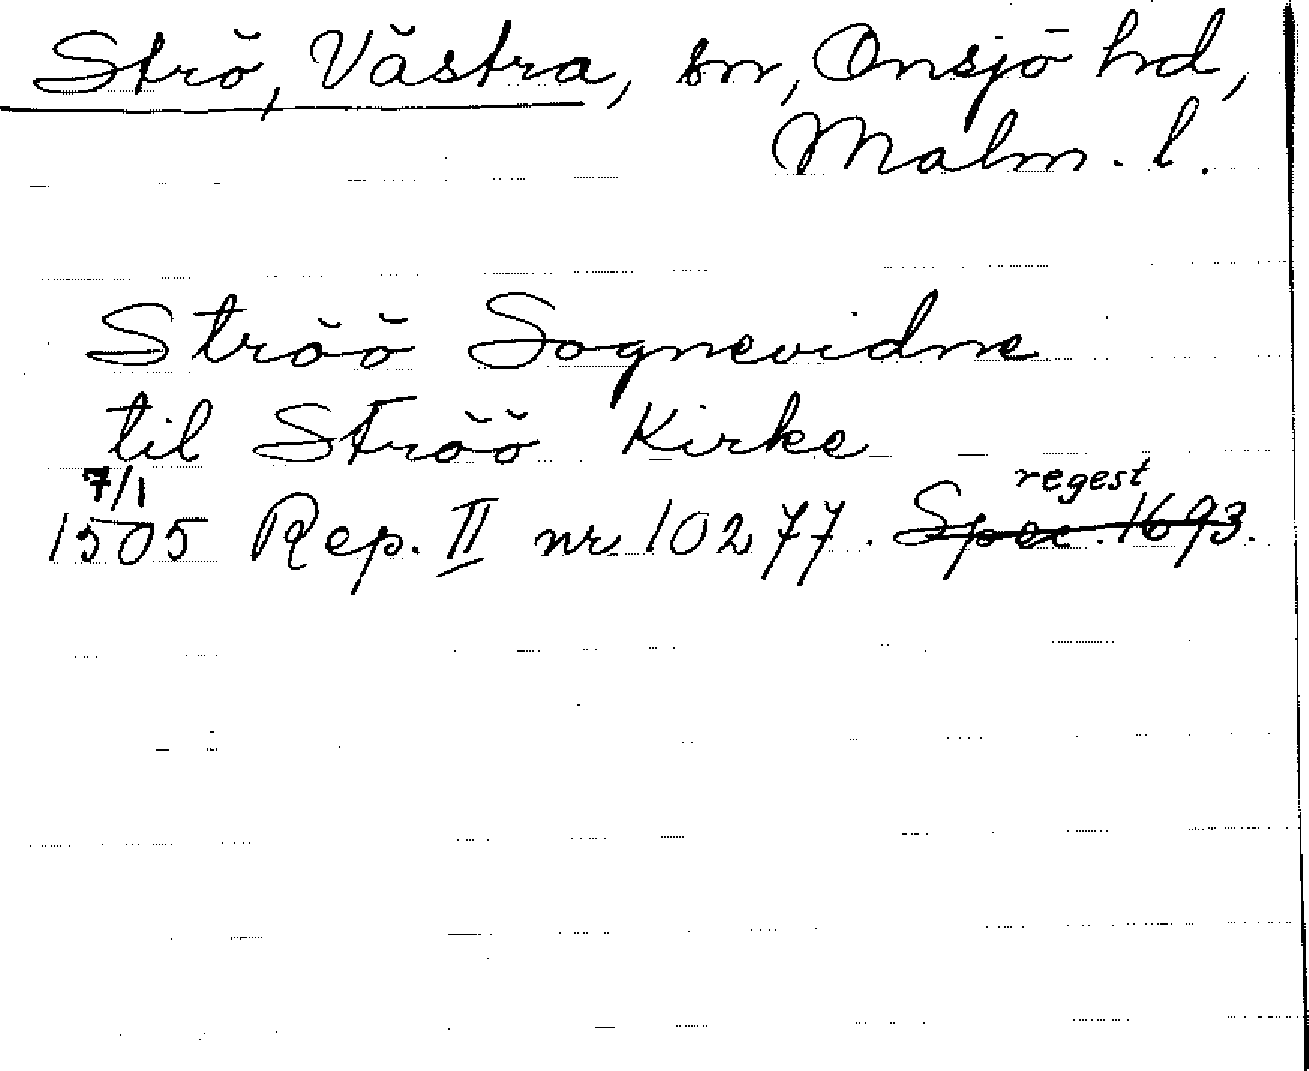 Strö, Västra, sn, Onsjö hd,
Malm. l.
Ströö Sognevidne
til Ströö Kirke
7/1 regest
1505 Rep. II nr 10277. Spec. 1693.